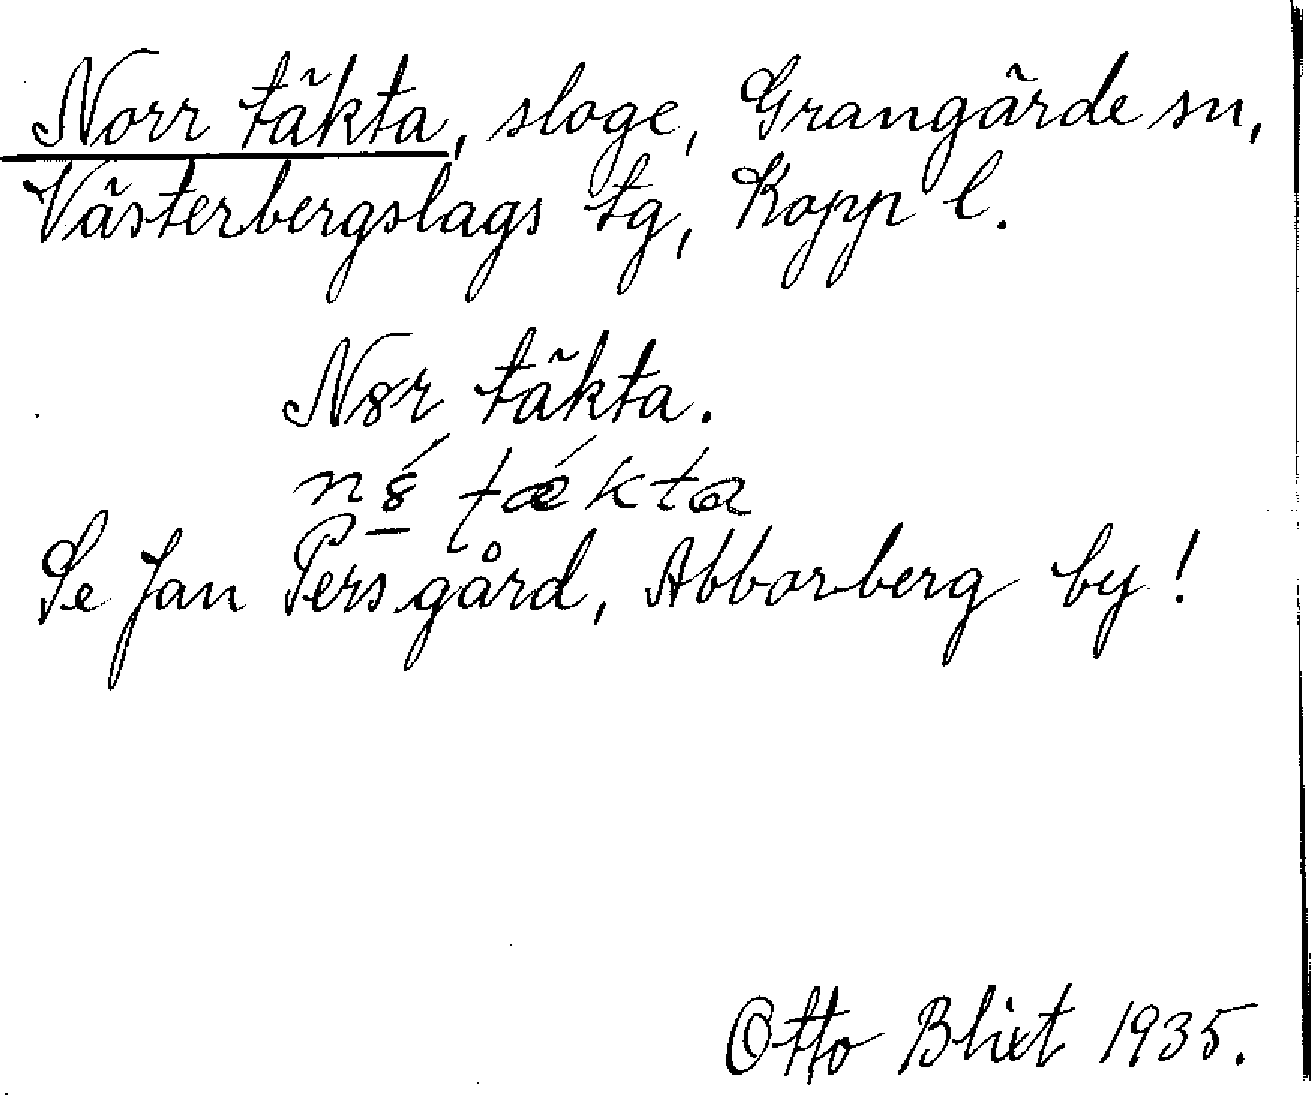 Norr täkta, sloge, Grangärde sn,
Västerbergslags tg, Kopp l.
N8r täkta.
n8́ tǽkta
Se Jan Persgård, Abborberg by!
Otto Blixt 1935.